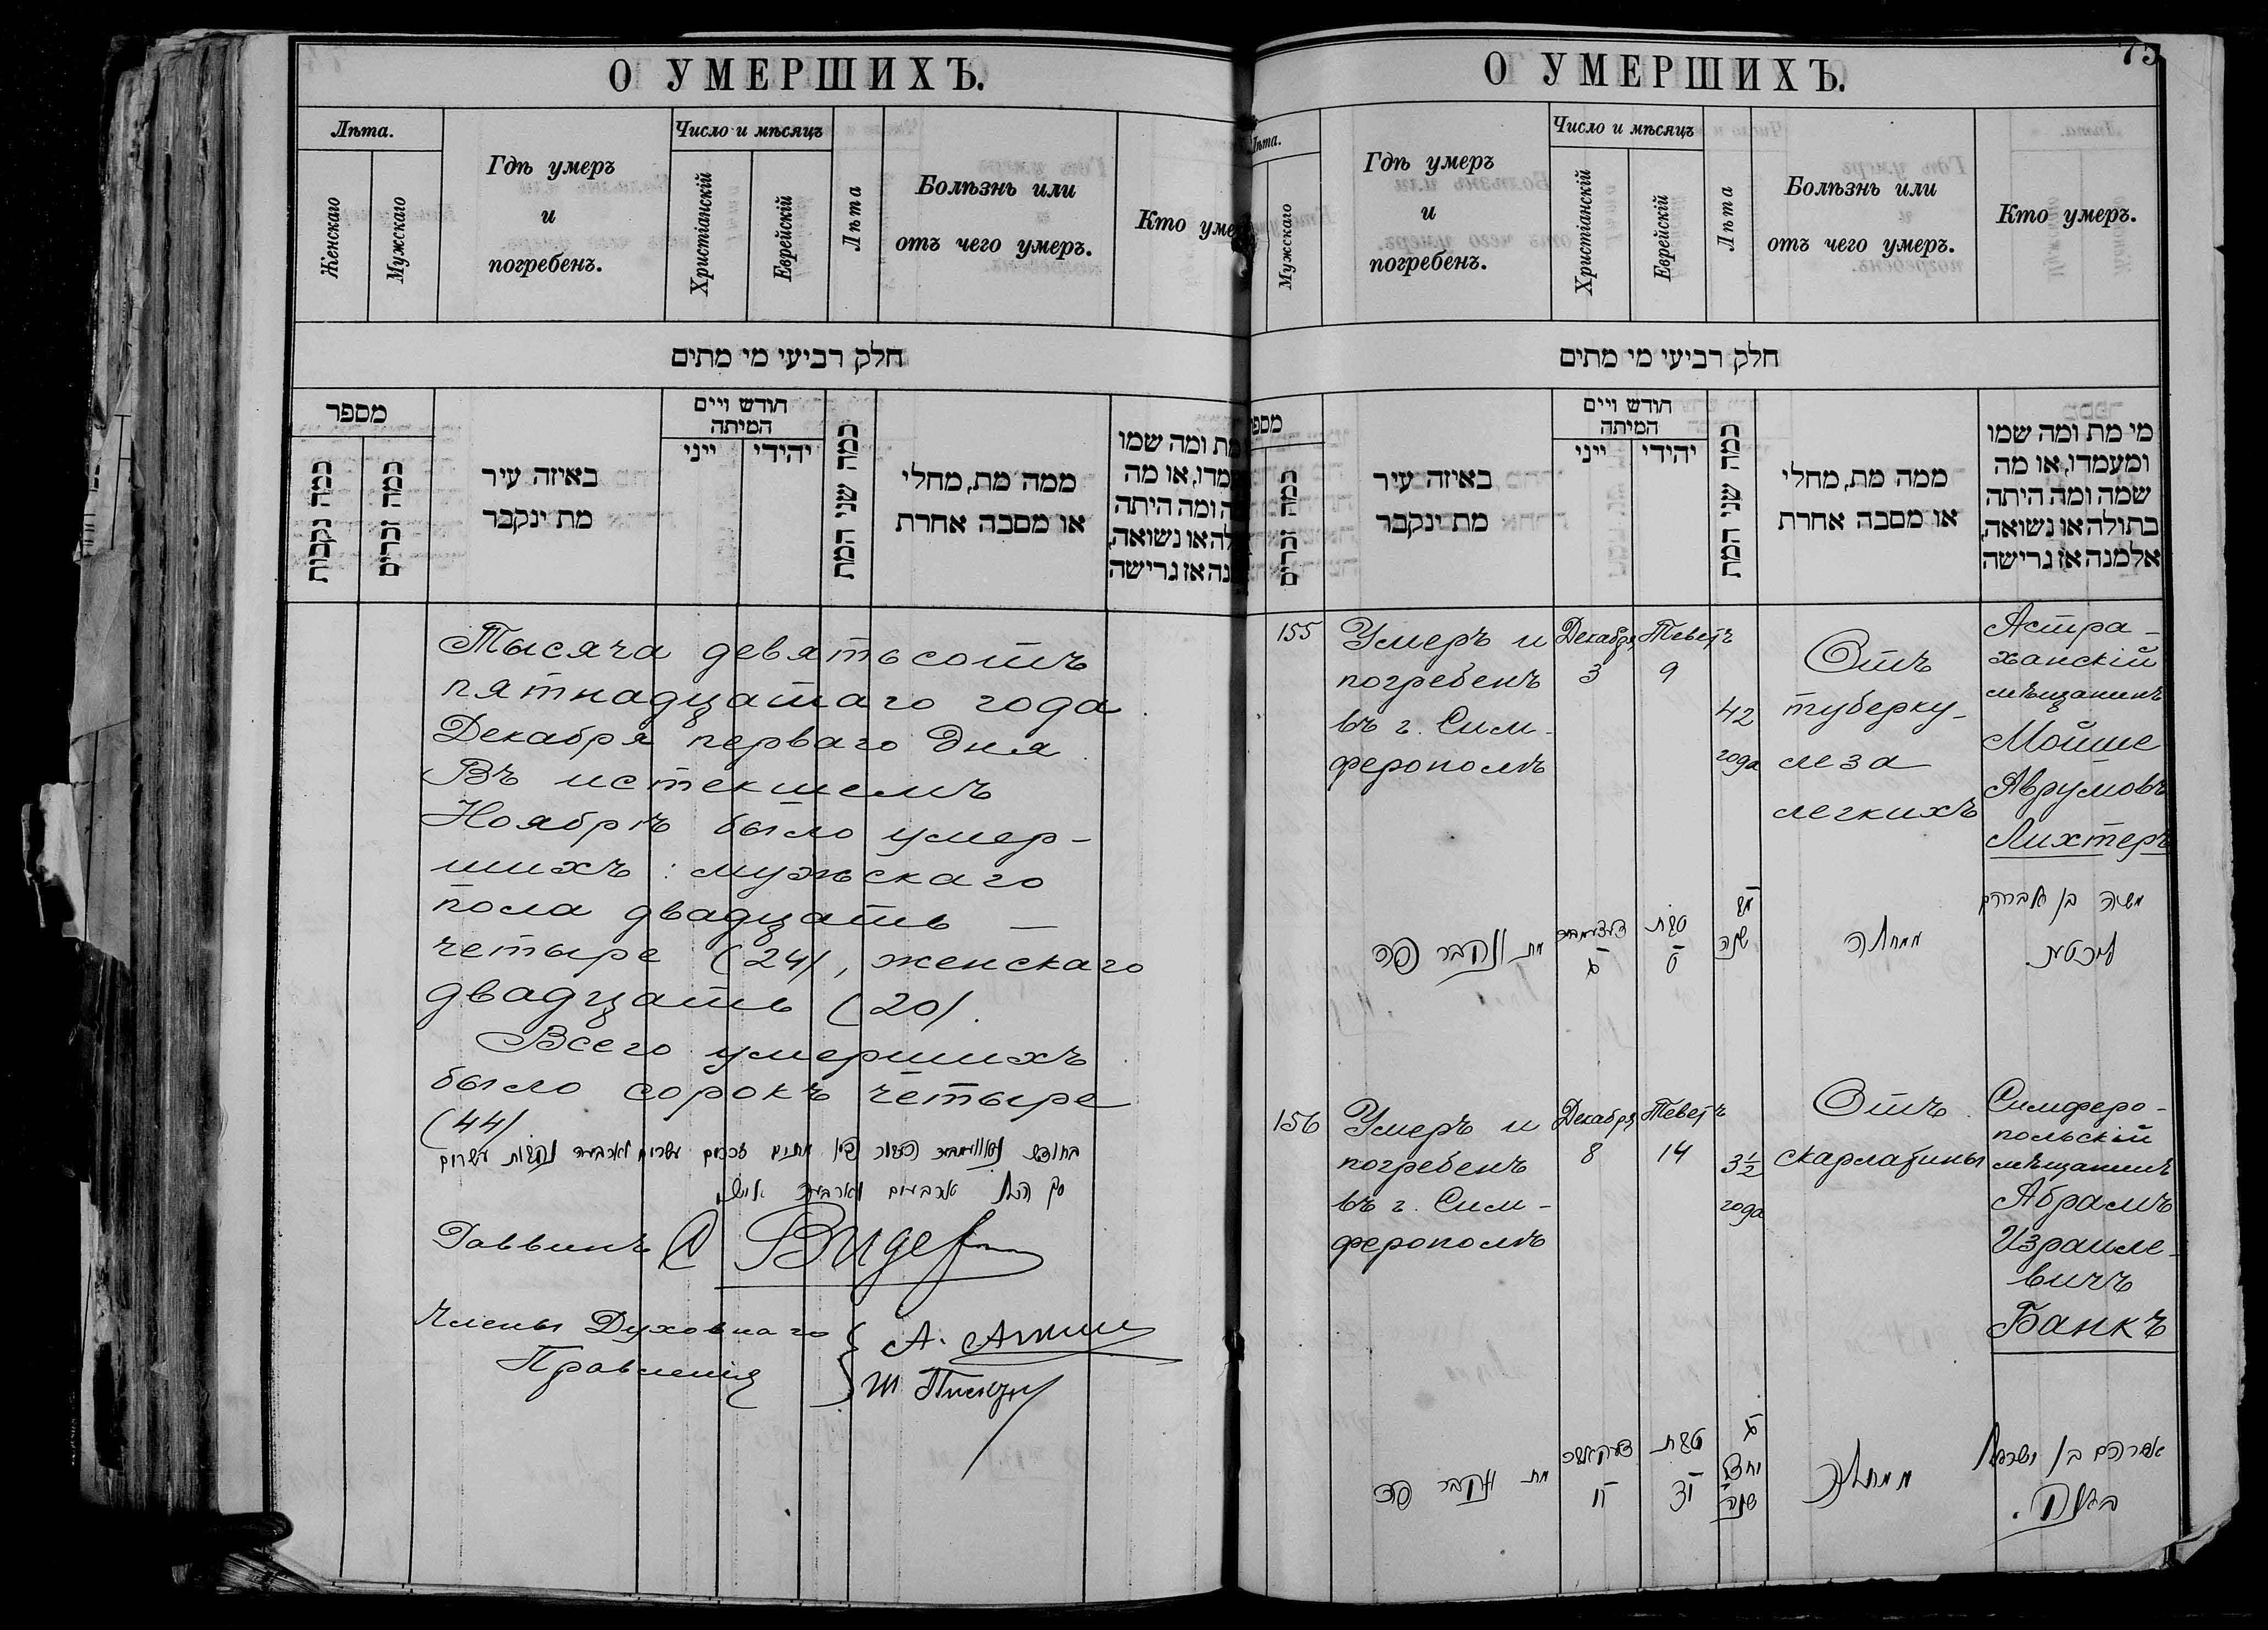 О УМЕРШИХЪ.
Лѣта.
Женскаго
Мужскаго
Гдѣ умеръ
и
погребенъ.
Число и мѣсяцъ
Христіанскій
Еврейскій
Лѣта
Болѣзнь или
отъ чего умеръ.
Кто уме
חלק רביעי מי מתים
מספר
כמה נקבות
כמה זכרים
באיזה עיר
מת ינקבר
חודש ויים
המיתה
ייני
יהודי
כמה שני המת
ממה מת, מחלי
או מסבה אחרת
מת ומה שמו
מדו, או מה
ה ומה היתה
לה או נשואה,
נה או גרישה
Тысяча девятьсотъ
пятнадцатаго года
Декабря перваго дня
Въ истекшемъ
Ноябрѣ было умер-
шихъ: мужскаго
пола двадцать —
четыре (24), женскаго
двадцать (20).
Всего умершихъ
было сорокъ четыре
(44)
בחודש נאוועמבער העבור פון מתים זכרים עשרים וארבעה נקבות עשרים
סך הכל ארבעים וארבעה איש
Раввинъ
Члены Духовнаго
Правленія
О УМЕРШИХЪ.
75
ѣта.
Мужскаго
Гдѣ умеръ
и
погребенъ.
Число и мѣсяцъ
Христіанскій
Еврейскій
Лѣта
Болѣзнь или
отъ чего умеръ.
Кто умеръ.
חלק רביעי מי מתים
מספ
כמה זכרים
באיזה עיר
מת ינקבר
חודש ויים
המיתה
ייני
יהודי
כמה שני המת
ממה מת, מחלי
או מסבה אחרת
מי מת ומה שמו
ומעמדו, או מה
שמה ומה היתה
בתולה או נשואה,
אלמנה או גרישה
155
Умеръ и
погребенъ
въ г. Сим-
ферополѣ
Декабря
3
Теветъ
9
42
года
Отъ
туберку-
леза
легкихъ
Астра-
ханскій
мѣщанинъ
Мойше
Аврумовъ
Лихтеръ
מת ונקבר פה
דעצעמבער
ג
טבת
ט
מב
שנה
ממחלה
משה בן אברהם
ליכטער
156
Умеръ и
погребенъ
въ г. Сим-
ферополѣ
Декабря
8
Теветъ
14
3½
года
Отъ
скарлатины
Симферо-
польскій
мѣщанинъ
Абрамъ
Израиле-
вичъ
Банкъ
מת ונקבר פה
דעקאבער
ח
טבת
יד
ג
וחצי
שנה
ממחלה
אברהם בן ישראל
באנק.